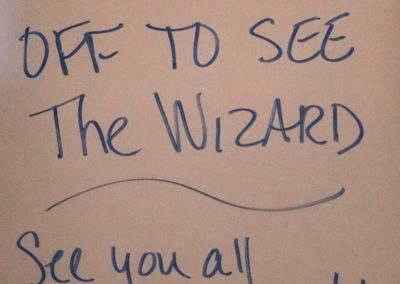 OFF TO SEE
The WIZARD
See you all